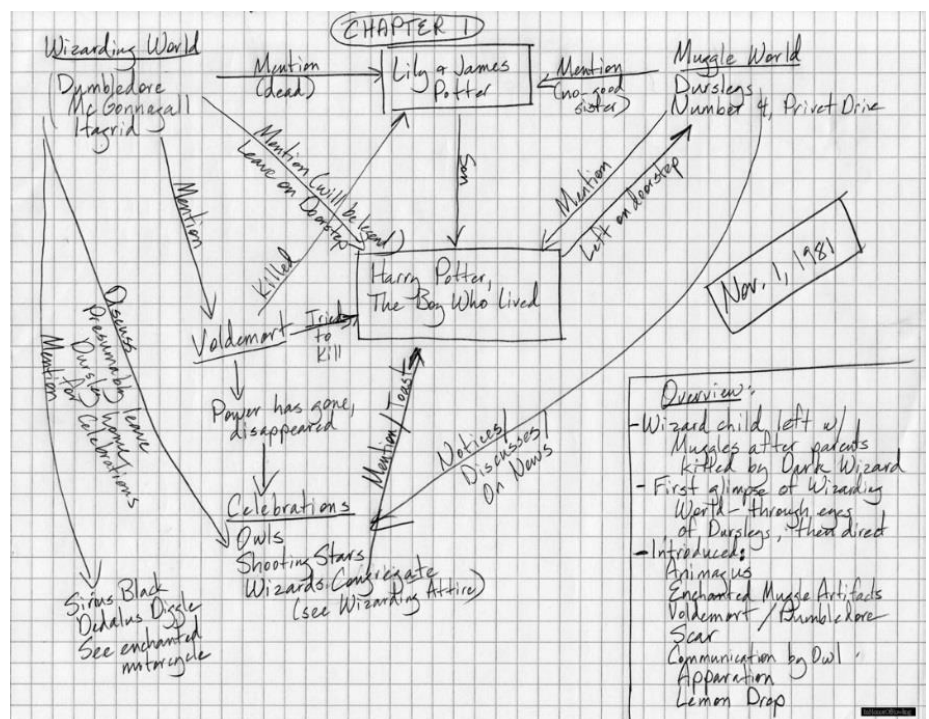 CHAPTER 1
Wizarding World
Dumbledore
McGonnagall
Hagrid
Mention
(dead)
Lily & James
Potter
Mention
(no-good
sister)
Muggle World
Dursleys
Number 4, Privet Drive
Mention (will be legend)
Leave on Doorstep
Mention
Killed
Son
Mention
Left on doorstep
Nov. 1, 1981
Harry Potter,
The Boy Who Lived
Voldemort
Tried
to
Kill
Discuss
Presumably leave
Dursley home
for Celebrations
Mention
Power has gone,
disappeared
Mention/Toast
Notices/
Discusses/
On News
Celebrations
Owls
Shooting Stars
Wizards Congregate
(see Wizarding Attire)
Sirius Black
Dedalus Diggle
See enchanted
motorcycle
Overview:
- Wizard child left w/
Muggles after parents
killed by Dark Wizard
- First glimpse of Wizarding
World - through eyes
of Dursleys, then direct
- Introduced:
Animagus
Enchanted Muggle Artifacts
Voldemort / Dumbledore
Scar
Communication by Owl
Apparation
Lemon Drop